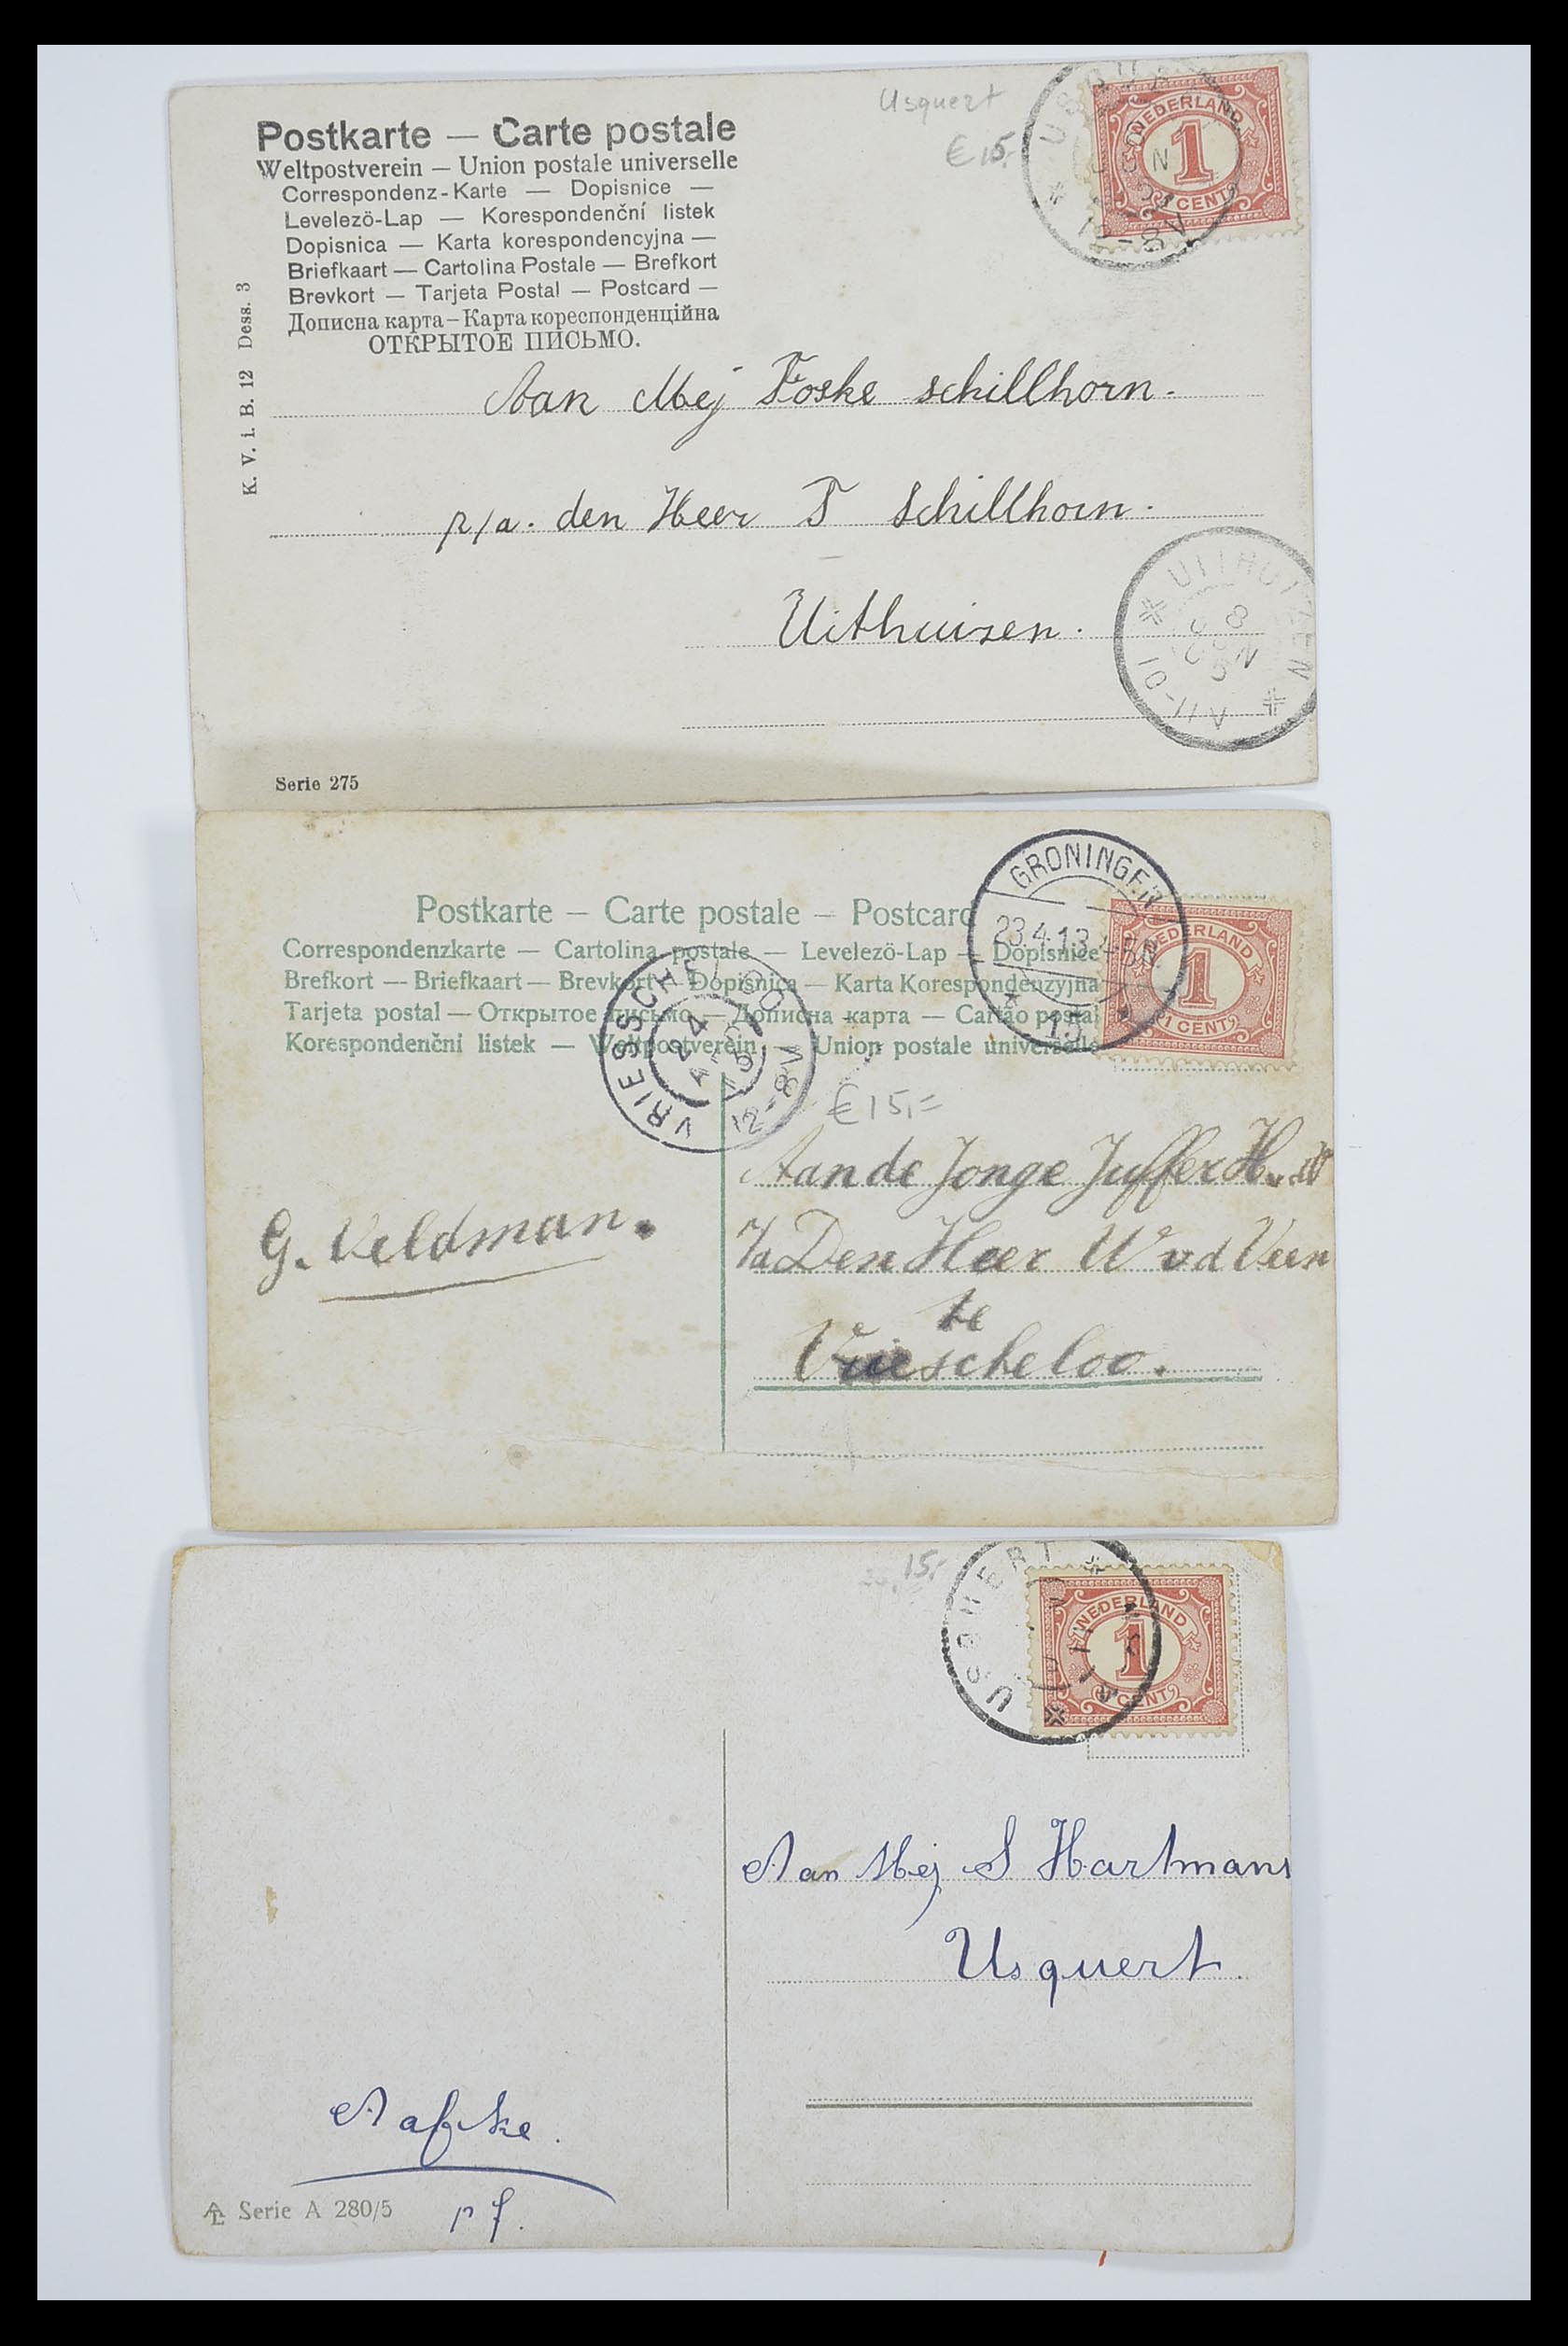 Usquert
€ 15,-
NEDERLAND
1
CENT
Postkarte — Carte postale
Weltpostverein — Union postale universelle
Correspondenz-Karte — Dopisnice —
Levelezö-Lap — Korespondenční listek
Dopisnica — Karta korespondencyjna —
Briefkaart — Cartolina Postale — Brefkort
Brevkort — Tarjeta Postal — Postcard —
Дописна карта — Карта кореспонденційна
ОТКРЫТОЕ ПИСЬМО.
K. V. i. B. 12 Dess. 3
Aan Mej Foske Schillhorn.
p/a. den Heer F Schillhorn.
Uithuizen.
UITHUIZEN
8 JUN
Serie 275
GRONINGEN
23.4.13 4-5N
15
NEDERLAND
1
1 CENT
Postkarte — Carte postale — Postcard
Correspondenzkarte — Cartolina postale — Levelezö-Lap — Dopisnice
Brefkort — Briefkaart — Brevkort — Dopisnica — Karta Korespondenzyjna
Tarjeta postal — Открытое письмо — Дописна карта — Cartão postal
Korespondenčni listek — Weltpostverein — Union postale universelle
VRIESSCHELOO
24
12-8V
€ 15,=
Aan de Jonge Juffer H. v. d. V
p/a Den Heer W v d Veen
te
Vriescheloo.
G. Veldman.
15,-
USQUERT
NEDERLAND
1
CENT
Aan Mej S Hartmans
Usquert.
Aafke.
p f.
Serie A 280/5